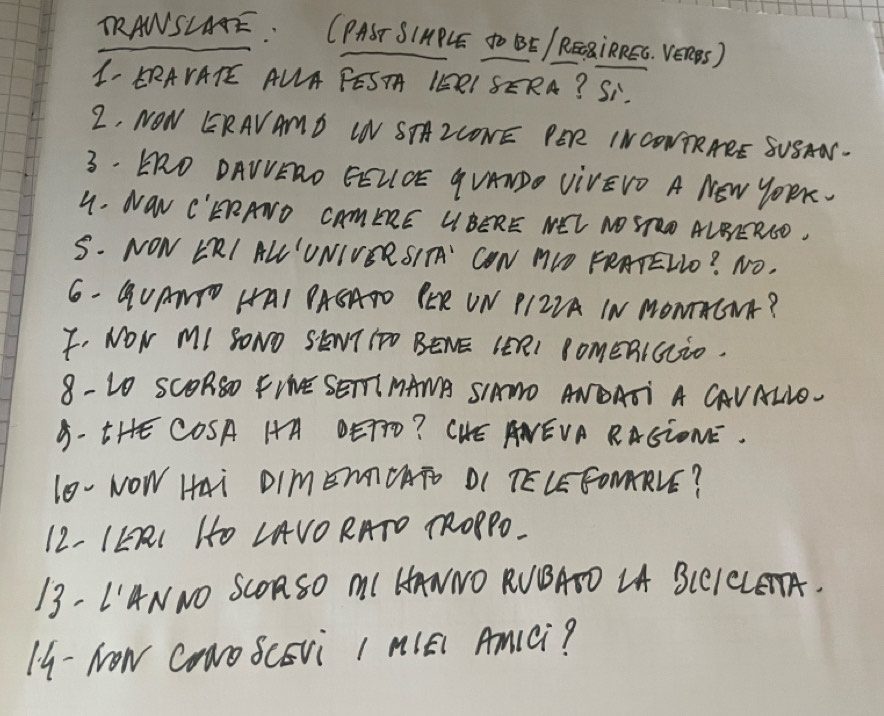 TRANSLATE: (PAST SIMPLE TO BE/REG&IRREG. VERBS)
1- ERAVATE ALLA FESTA IERI SERA? SI.
2. NON ERAVAMO IN STAZIONE PER INCONTRARE SUSAN.
3- ERO DAVVERO FELICE QUANDO VIVEVO A NEW YORK.
4. NON C'ERANO CAMERE LIBERE NEL NOSTRO ALBERGO.
5- NON ERI ALL'UNIVERSITA' CON MIO FRATELLO? NO.
6- QUANTO HAI PAGATO PER UN PIZZA IN MONTAGNA?
7. NON MI SONO SENTITO BENE IERI POMERIGGIO.
8- LO SCORSO FINE SETTIMANA SIAMO ANDATI A CAVALLO.
9- CHE COSA HA DETTO? CHE AVEVA RAGIONE.
10- NON HAI DIMENTICATO DI TELEFONARLE?
12- IERI HO LAVORATO TROPPO.
13- L'ANNO SCORSO MI HANNO RUBATO LA BICICLETTA.
14- NON CONOSCEVI I MIEI AMICI?